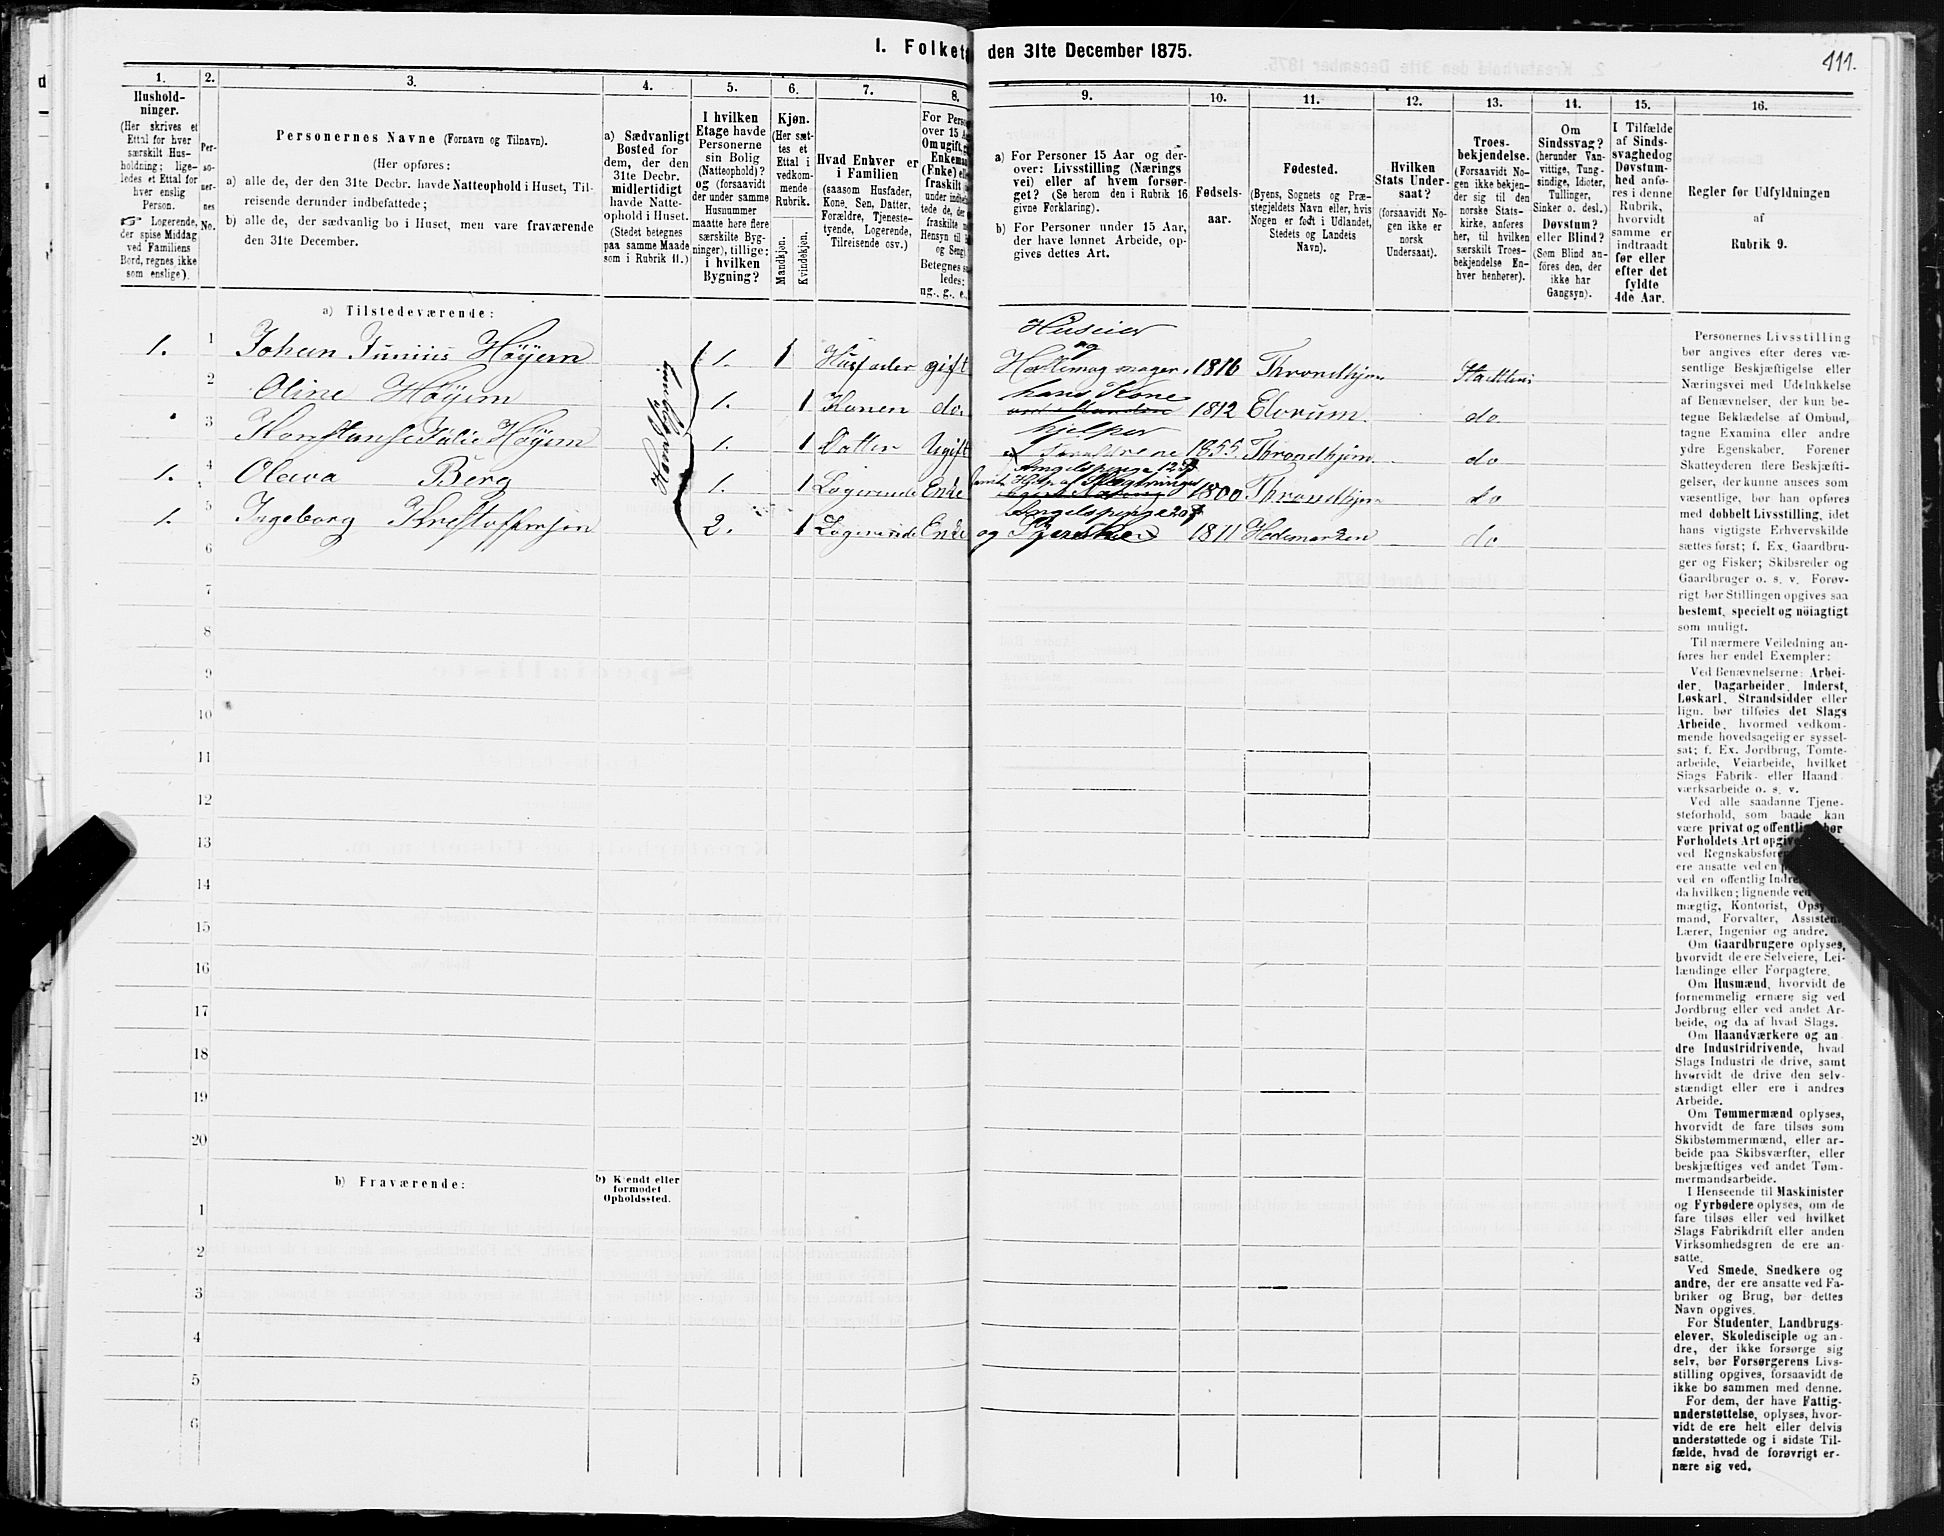 I. Folket
den 31te December 1875.
111.
1.
2.
3.
4.
5.
6.
7.
8.
9.
10.
11.
12.
13.
14.
15.
16.
Hushold-
ninger.
(Her skrives et
Ettal for hver
særskilt Hus-
holdning; lige-
ledes et Ettal for
hver enslig
Person.
☞ Logerende,
der spise Middag
ved Familiens
Bord, regnes ikke
som enslige).
Per-
so-
ner-
nes
No.
Personernes Navne (Fornavn og Tilnavn).
(Her opføres:
a) alle de, der den 31te Decbr. havde Natteophold i Huset, Til-
reisende derunder indbefattede;
b) alle de, der sædvanlig bo i Huset, men vare fraværende
den 31te December.
a) Sædvanligt
Bosted for
dem, der den
31te Decbr.
midlertidigt
havde Natte-
ophold i Huset.
(Stedet betegnes
paa samme Maade
som i Rubrik 11.)
I hvilken
Etage havde
Personerne
sin Bolig
(Natteophold)?
og (forsaavidt
der under samme
Husnummer
maatte høre flere
særskilte Byg-
ninger), tillige:
i hvilken
Bygning?
Kjøn.
(Her sæt-
tes et
Ettal i
vedkom-
mende
Rubrik.
Mandkjøn.
Kvindekjøn.
Hvad Enhver er
i Familien
(saasom Husfader,
Kone, Søn, Datter,
Forældre, Tjeneste-
tyende, Logerende,
Tilreisende osv.)
For Perso
over 15 A
Om ugift, g
Enkema
(Enke) ell
fraskilt
under indbe
tede de, der
fraskilte
Hensyn til
og Seng).
Betegnes sa
ledes:
ug., g., e.,
a) For Personer 15 Aar og der-
over: Livsstilling (Nærings
vei) eller af hvem forsør-
get? (Se herom den i Rubrik 16
givne Forklaring).
b) For Personer under 15 Aar,
der have lønnet Arbeide, op-
gives dettes Art.
Fødsels-
aar.
Fødested.
(Byens, Sognets og Præ-
stegjeldets Navn eller, hvis
Nogen er født i Udlandet,
Stedets og Landets
Navn).
Hvilken
Stats Under-
saat?
(forsaavidt No-
gen ikke er
norsk
Undersaat).
Troes-
bekjendelse.
(Forsaavidt No-
gen ikke bekjen-
der sig til den
norske Stats-
kirke, anføres
her, til hvilken
særskilt Troes-
bekjendelse En-
hver henhører).
Om
Sindssvag?
(herunder Van-
vittige, Tung-
sindige, Idioter,
Tullinger,
Sinker o. desl.)
Døvstum?
eller Blind?
(Som Blind an-
føres den, der
ikke har
Gangsyn).
I Tilfælde
af Sinds-
svaghed og
Døvstum-
hed anfø-
res i denne
Rubrik,
hvorvidt
samme er
indtraadt
før eller
efter det
fyldte
4de Aar.
Regler for Udfyldningen
af
Rubrik 9.
a) Tilstedeværende:
1. 1 Johan Junius Höyem 1. 1 Husfader gift Huseier og Hattemager 1816 Throndhjem
2 Oline Höyem 1. 1 Konen do. hans Kone 1812 Elvrum do
3 Konstanse Julie Höyem 1. 1 Datter Ugift hjelper Forældrene 1855 Throndhjem do
1. 4 Olava Berg 1. 1 Logerende Enke 1800 Throndhjem do
1. 5 Ingeborg Krestoffersen 2. 1 Logerende Enke og 1811 Hedemarken do
6
7
8
9
10
11
12
13
14
15
16
17
18
19
20
b) Fraværende:
b) Kjendt eller
formodet
Opholdssted.
1
2
3
4
5
6
Personernes Livsstilling
bør angives efter deres væ-
sentlige Beskjæftigelse eller
Næringsvei med Udelukkelse
af Benævnelser, der kun be-
tegne Beklædelse af Ombud,
tagne Examina eller andre
ydre Egenskaber. Forener
Skatteyderen flere Beskjæfti-
gelser, der kunne ansees som
væsentlige, bør han opføres
med dobbelt Livsstilling, idet
hans vigtigste Erhvervskilde
sættes først; f. Ex. Gaardbru-
ger og Fisker; Skibsreder og
Gaardbruger o. s. v. Forøv-
rigt bør Stillingen opgives saa
bestemt, specielt og nöiagtigt
som muligt.
Til nærmere Veiledning an-
føres her endel Exempler:
Ved Benævnelserne: Arbei-
der, Dagarbeider, Inderst,
Løskarl, Strandsidder eller
lign. bør tilføies det Slags
Arbeide, hvormed vedkom-
mende hovedsagelig er syssel-
sat; f. Ex. Jordbrug, Tomte-
arbeide, Veiarbeide, hvilket
Slags Fabrik- eller Haand
værksarbeide o. s. v.
Ved alle saadanne Tjene-
steforhold, som baade kan
være privat og offentlig, bør
Forholdets Art opgive
ved Regnskabsfører
ere ansatte ved en
ved en offentlig Indre
da hvilken; lignende ved
mægtig, Kontorist, Opsy
mand, Forvalter, Assistent
Lærer, Ingeniør og andre.
Om Gaardbrugere oplyses,
hvorvidt de ere Selveiere, Lei-
lændinge eller Forpagtere.
Om Husmænd, hvorvidt de
fornemmelig ernære sig ved
Jordbrug eller ved andet Ar-
beide, og da af hvad Slags.
Om Haandværkere og an-
dre Industridrivende, hvad
Slags Industri de drive, samt
hvorvidt de drive den selv-
stændigt eller ere i andres
Arbeide.
Om Tømmermænd oplyses,
hvorvidt de fare tilsøs som
Skibstømmermænd, eller ar-
beide paa Skibsværfter, eller
beskjæftiges ved andet Tøm-
mermandsarbeide.
I Henseende til Maskinister
og Fyrbødere oplyses, om de
fare tilsøs eller ved hvilket
Slags Fabrikdrift eller anden
Virksomhedsgren de ere an-
satte.
Ved Smede, Snedkere og
andre, der ere ansatte ved Fa-
briker og Brug, bør dettes
Navn opgives.
For Studenter, Landbrugs-
elever, Skoledisciple og an-
dre, der ikke forsørge sig
selv, bør Forsørgerens Livs-
stilling opgives, forsaavidt de
ikke bo sammen med denne.
For dem, der have Fattig-
understøttelse, oplyses, hvor-
vidt de ere helt eller delvis
understøttede og i sidste Til-
fælde, hvad de forøvrigt er-
nære sig ved.